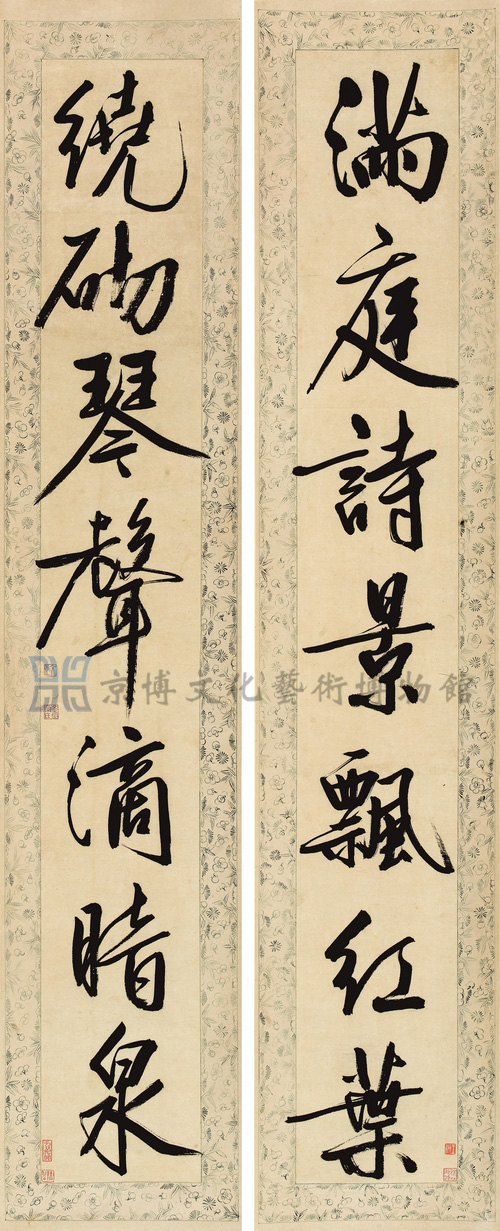 满庭詩景飄紅葉
繞砌琴聲滴暗泉
京博文化藝術博物館